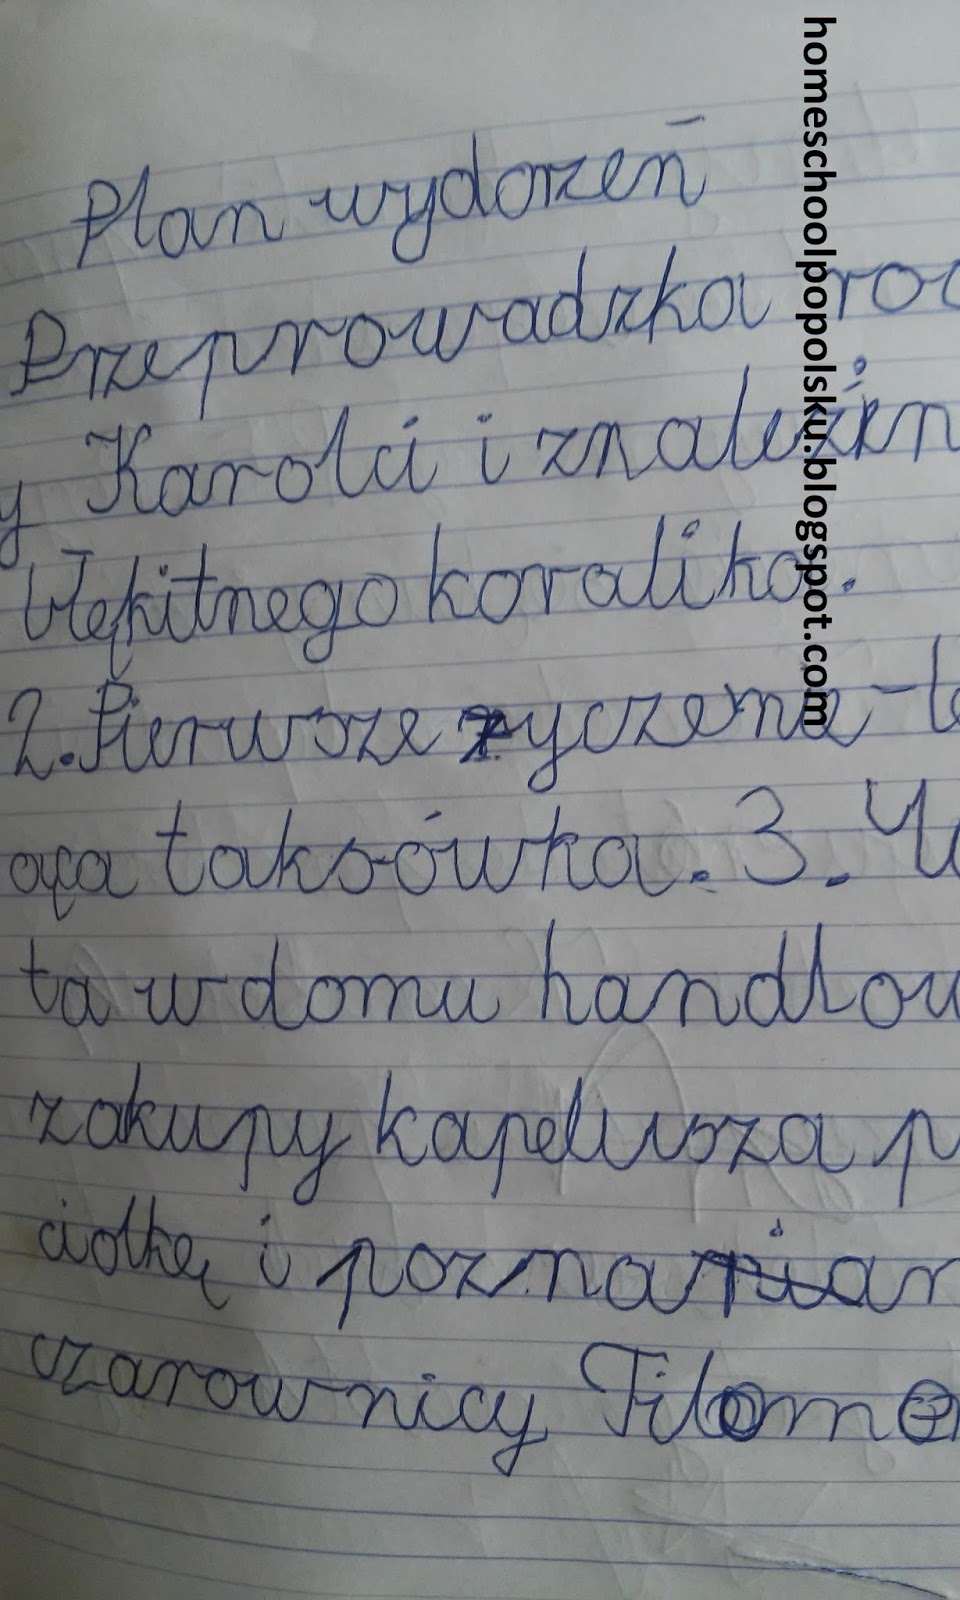 Plan wydorzeń
Przeprowadzka roc
y Karolci i znaleźien
błękitnego koralika.
2. Pierwsze życzenie - le
ąca taksówka. 3. W
ta w domu handlow
zakupy kapelusza p
ciotkę i pozna
czarownicy Filome
homeschoolpopolsku.blogspot.com